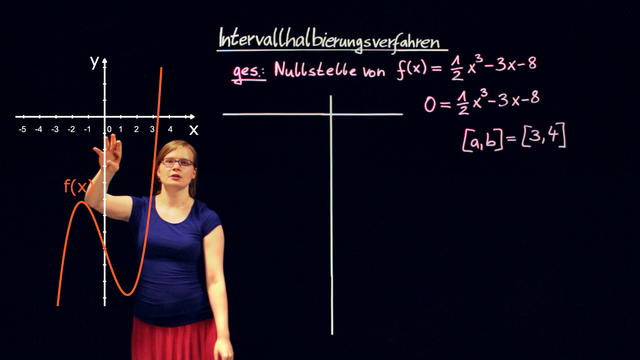 Intervallhalbierungsverfahren
ges.: Nullstelle von f(x) = 1/2 x³ - 3x - 8
0 = 1/2 x³ - 3x - 8
[a,b] = [3,4]
y
-5 -4 -3 -2 -1 0 1 2 3 4
x
f(x)